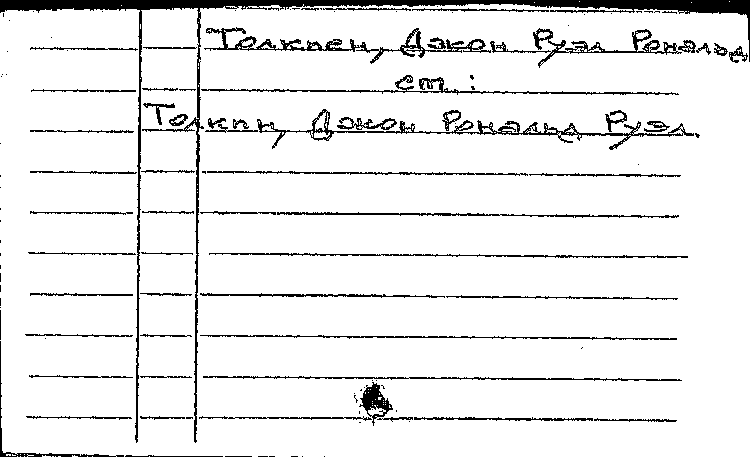 Толкиен, Джон Руэл Рональд
см.:
Толкин, Джон Рональд Руэл.